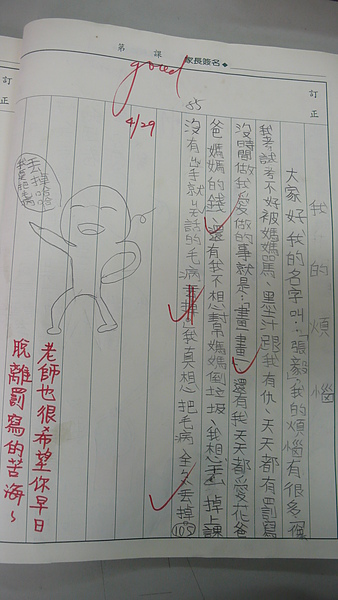 第 課 家長簽名◆
訂正
訂正
good
85
我的煩惱
大家好我的名字叫:「張毅」我的煩惱有很多、像
我考試考不好被媽媽罵、墨汁跟我有仇、天天都有罰寫
沒時間做我愛做的事就是:「畫畫」還有我天天都愛花爸
爸媽媽的錢、還有我不想幫媽媽倒垃圾、我想丟掉上課
沒有手就話的毛病我真想把毛病全丟掉
105
4/29
丟掉哈哈
老師也很希望你早日
脫離罰寫的苦海~